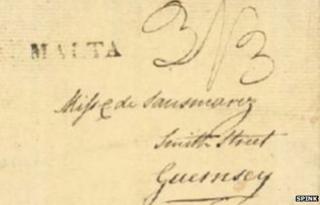 MALTA
3/3
Miss de Sausmarez
Smith Street
Guernsey
SPINK